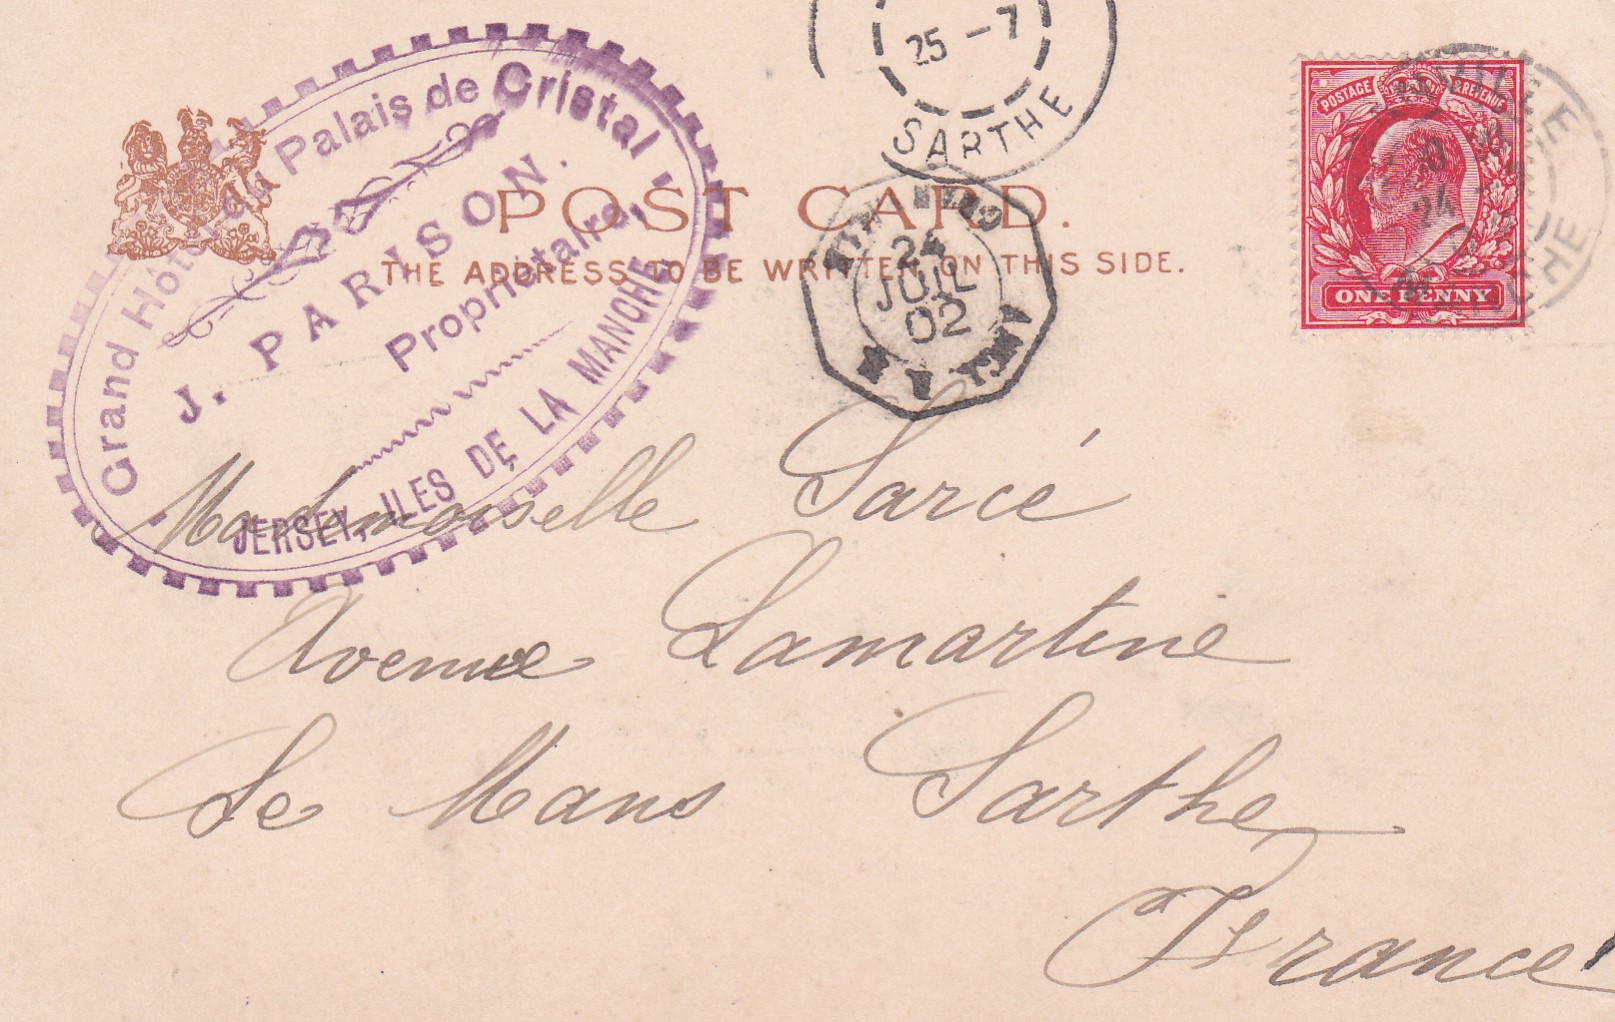 25 - 7
SARTHE
POSTAGE & REVENUE
ONE PENNY
24
POST CARD.
THE ADDRESS TO BE WRITTEN ON THIS SIDE.
24
JUIL
02
Grand Hôtel du Palais de Cristal
J. PARISON.
Propriétaire,
JERSEY, ILES DE LA MANCHE
Mademoiselle Sarcé
Avenue Lamartine
Le Mans Sarthe
France